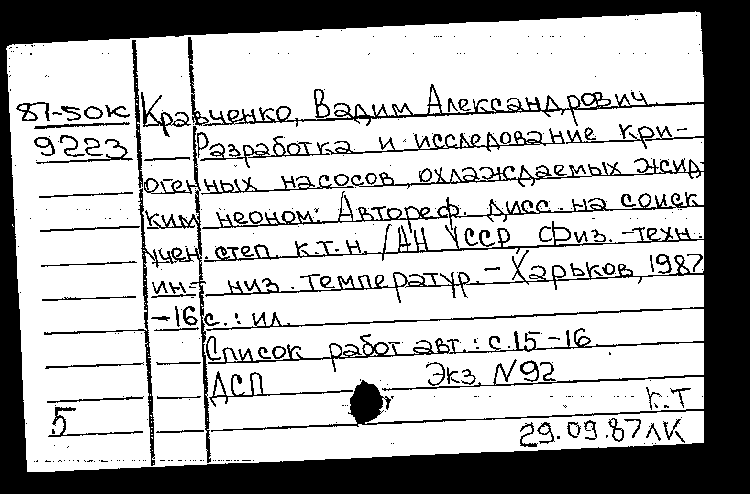 87-50К Кравченко, Вадим Александрович
9223 Разработка и исследование кри-
огенных насосов, охлаждаемых жид
ким неоном: Автореф. дисс. на соиск
учен. степ. к.т.н. /АН УССР, Физ.-техн.
ин-т низ. температур. - Харьков, 1987
-16с.: ил.
Список работ авт.: с.15-16
ДСП Экз. №92
к.т
5
29.09.87ЛК